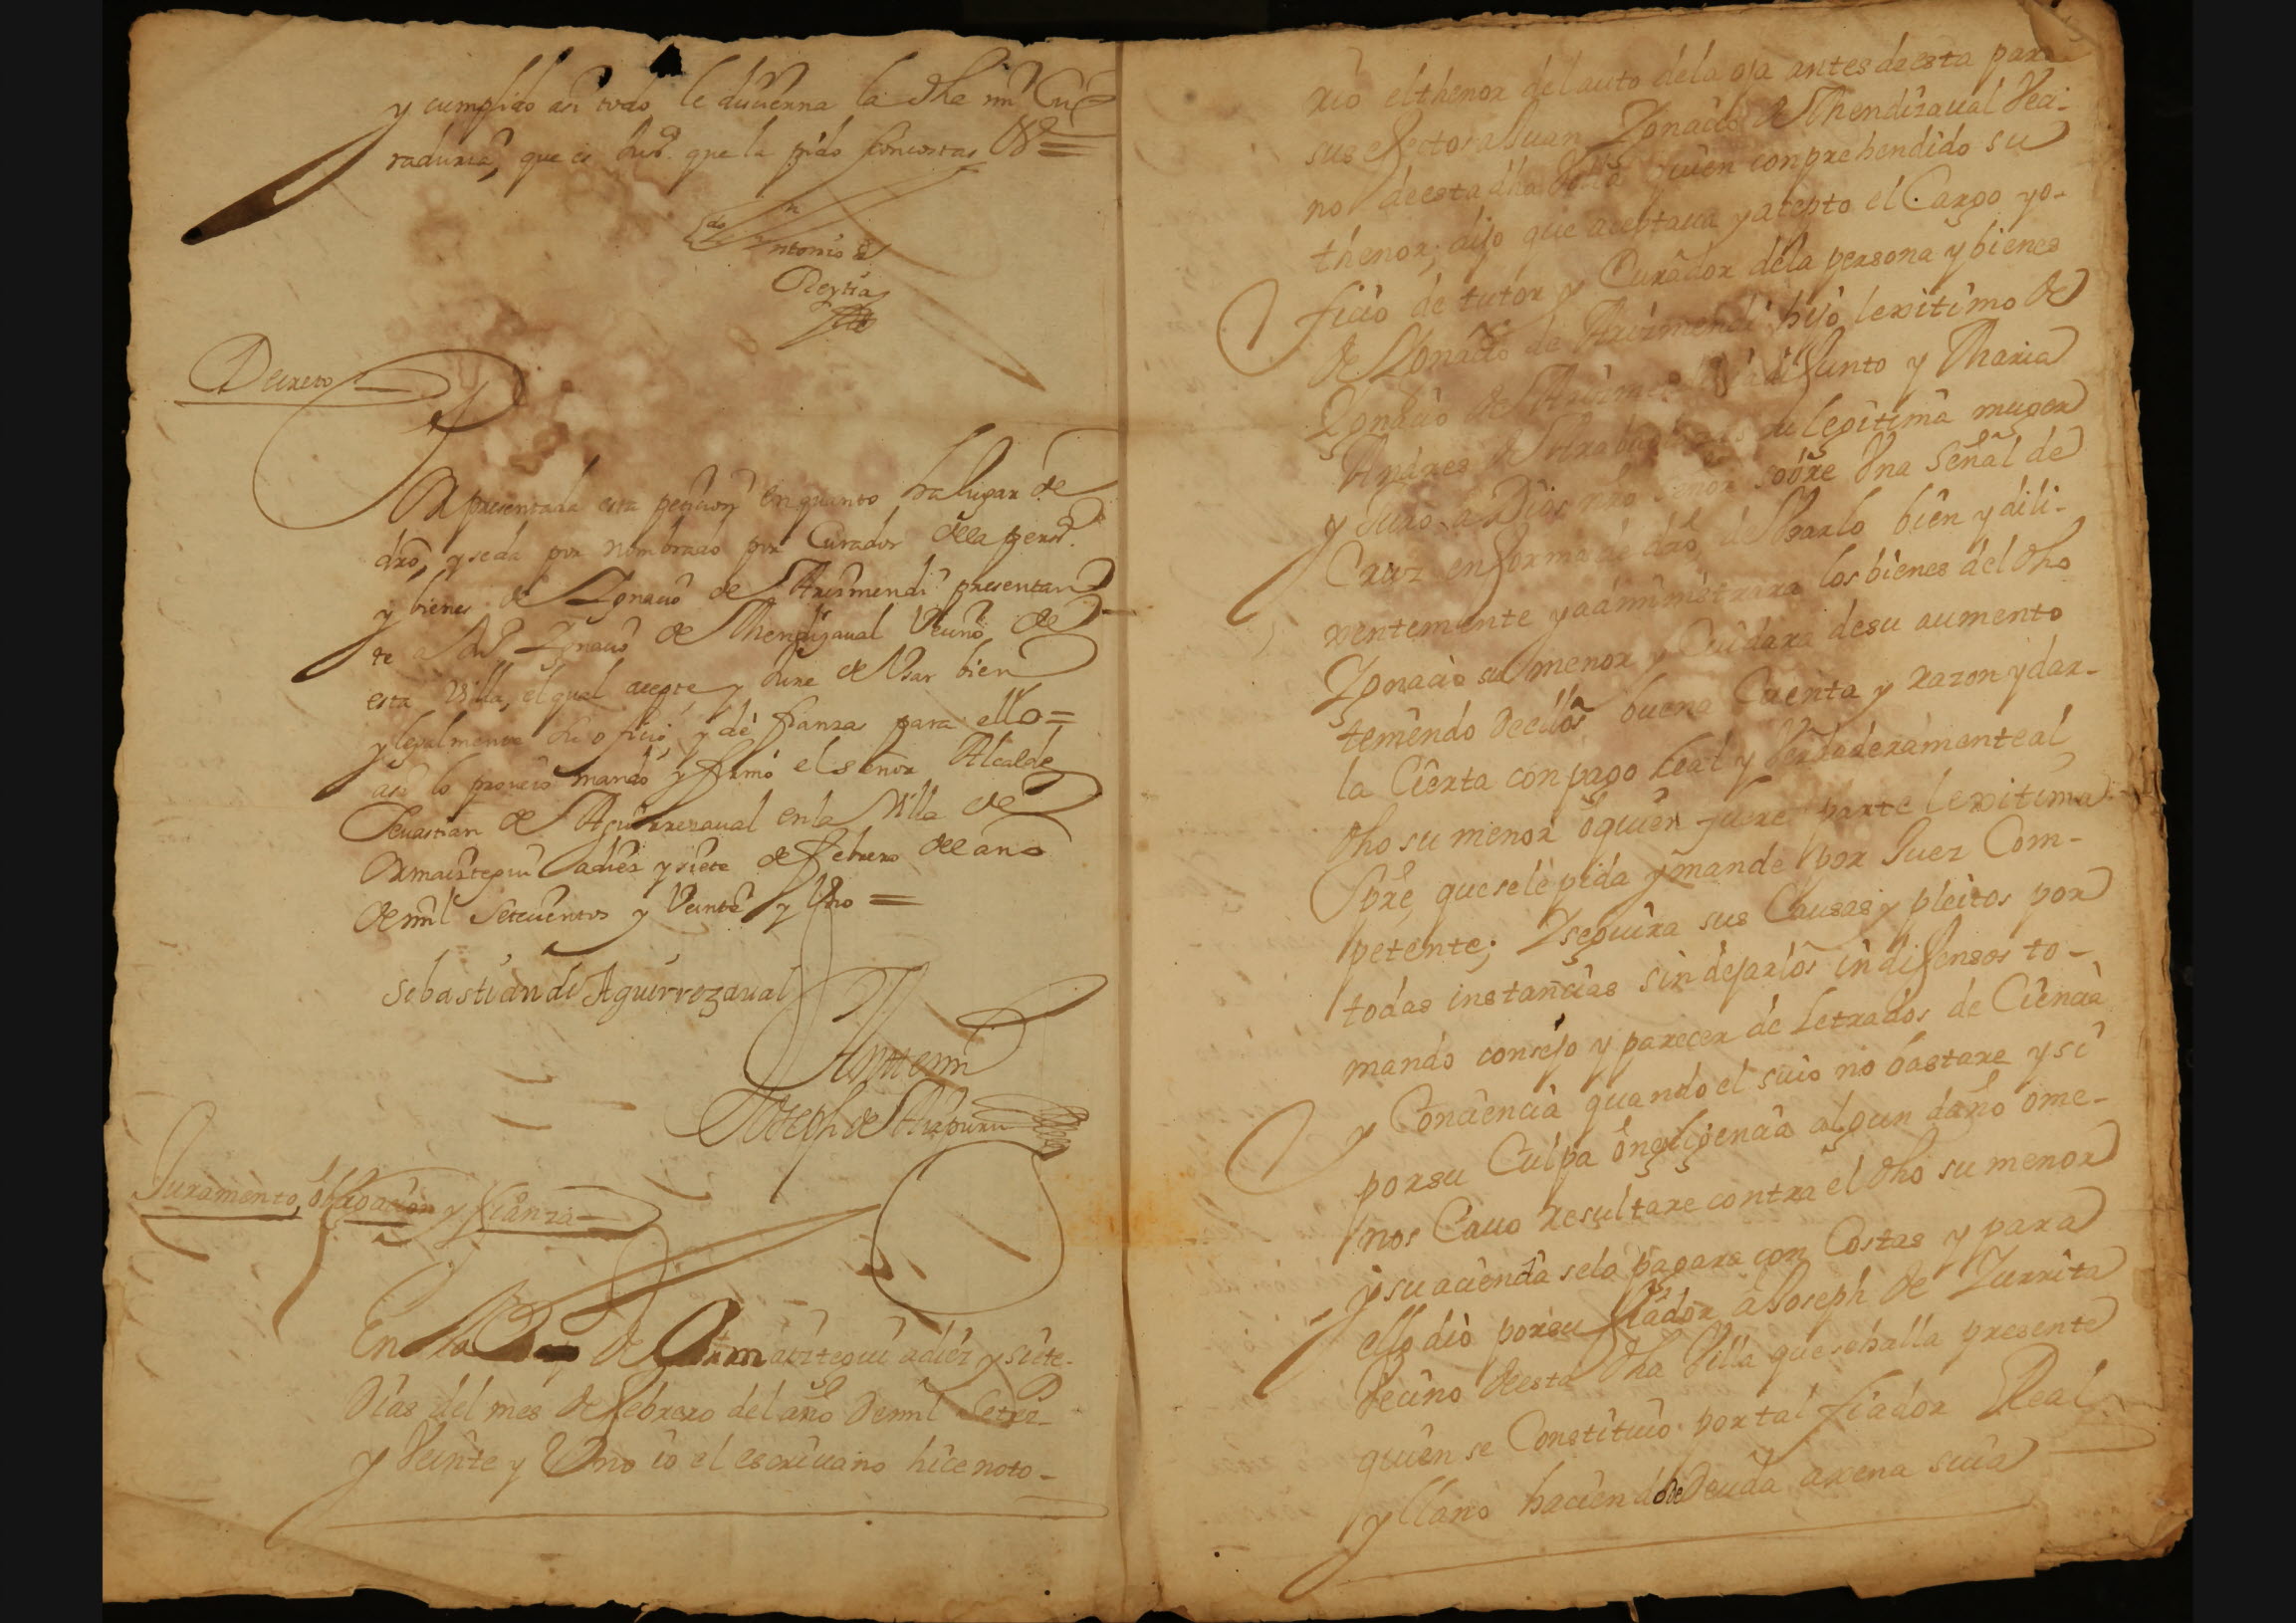 y cumplido assi todo le diuierna la dha mi Cu-
raduria, que es Jusᵃ. que la pido con costas Vᵃ =
Ldo Dn Antonio de
Oleytia
Decreto
Por presentada esta petiçion en quanto ha lugar de
dro, y se da por nombrado por Curador de la persᵃ.
y bienes de Ygnacio de Arismendi presentan-
te a Juº Ygnacio de Mendizaual Vecino de
esta Villa, el qual acepte, y Jure de Vsar bien
y legalmente su oficio y dè fianzas para ello =
assi lo proueió mandó y firmó el señor Alcalde
Seuastian de Aguirrezaual en la Villa de
Ormaiztegui a diez y siete de febrero del año
de mil Setecientos y Veinte y Vno =
Sebastian de Aguirrezaual
Ante mi
Joseph de
Juramento, obligacion y fianza
En la de Ormaiztegui a diez y siete
dias del mes de febrero del año de mil Sete
y Veinte y Vno io el escriuano hice noto-
rio el thenor del auto de la oja antes de esta para
sus efectos a Juan Ygnacio de Mendizaual Veci-
no de esta dha Villa quien conprehendido su
thenor, dijo que aceptaua y acepto el Cargo y o-
ficio de tutor y Curador de la persona y bienes
de Ygnacio de Arizmendi hijo lexitimo de
Ygnacio de Arizmendi ia difunto y Maria
Andres de su legitima muger
y Juro a Dios nro señor sobre Vna Señal de
Cruz en forma de dro de Vsarlo bien y dili-
xentemente y administrara los bienes del dho
Ygnacio su menor y Cuidara de su aumento
teniendo de ellos buena Cuenta y razon y dar-
la Cierta con pago Leal y Verdaderamente al
dho su menor o quien fuere parte lexitima
Spre que se le pida y mande por Juez Com-
petente; Y seguira sus Causas y pleitos por
todas instancias sin dejarlos indifensos to-
mando consejo y parecer de Letrados de Ciencia
y Conciencia quando el suio no bastare y si
por su Culpa o negligencia algun daño o me-
nos Cauo resultare contra el dho su menor
y su acienda se lo pagara con Costas y para
ello dio por su fiador a Joseph de Zurrita
Vecino de esta dha Villa que se halla presente
quien se Constituio por tal fiador Real
y llano haciendo de Deuda axena suia